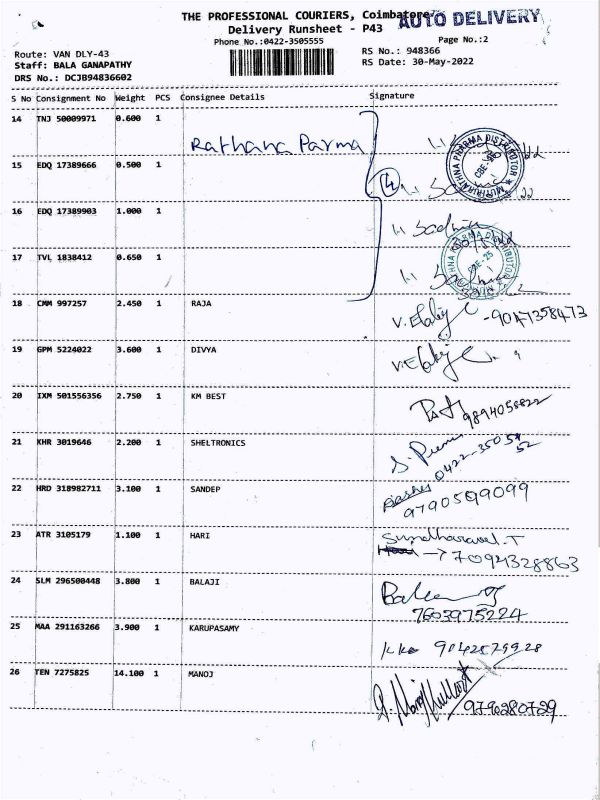 THE PROFESSIONAL COURIERS, Coimbatore
AUTO DELIVERY
Delivery Runsheet - P43
Phone No.:0422-3505555
Page No.:2
Route: VAN DLY-43
RS No.: 948366
Staff: BALA GANAPATHY
RS Date: 30-May-2022
DRS No.: DCJB94836602
S No Consignment No Weight PCS Consignee Details Signature
14 TNJ 50009971 0.600 1
Rathana Parma
15 EDQ 17389666 0.500 1
16 EDQ 17389903 1.000 1
17 TVL 1838412 0.650 1
18 CMM 997257 2.450 1 RAJA
19 GPM 5224022 3.600 1 DIVYA
20 IXM 501556356 2.750 1 KM BEST
9894058822
21 KHR 3019646 2.200 1 SHELTRONICS
22 HRD 318982711 3.100 1 SANDEP
9790509099
23 ATR 3105179 1.100 1 HARI
7094328863
24 SLM 296500448 3.800 1 BALAJI
7603975224
25 MAA 291163266 3.900 1 KARUPASAMY
26 TEN 7275825 14.100 1 MANOJ
9790280729